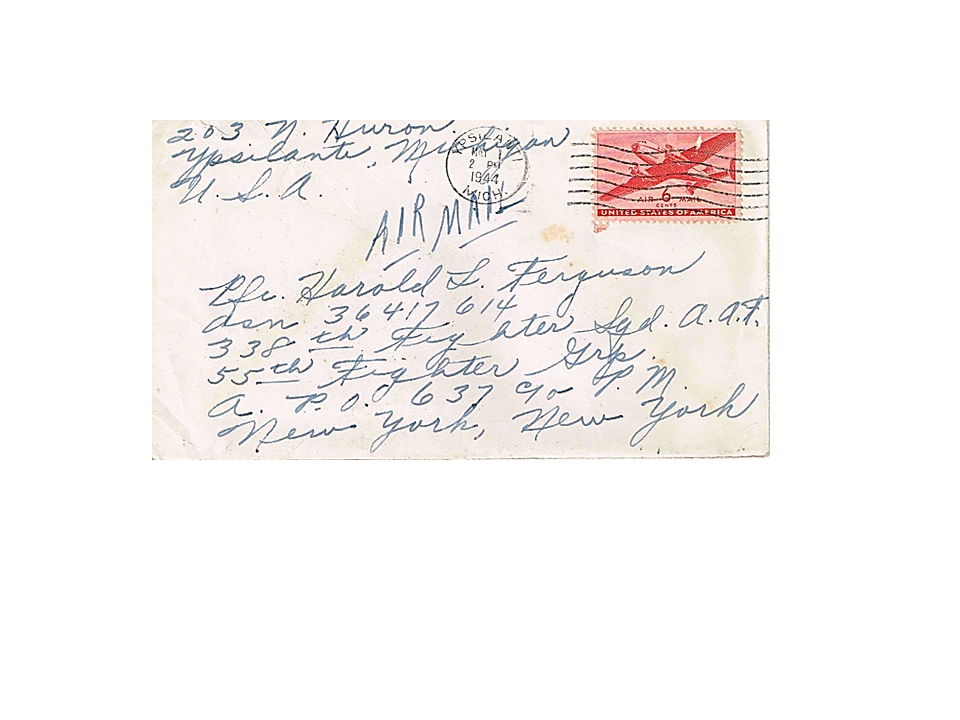 203 N. Huron.
Ypsilante, Michigan
U. S. A
YPSILANTI
MAY 1
2 PM
1944
MICH.
AIR MAIL
AIR 6 MAIL
CENTS
UNITED STATES OF AMERICA
Pfc. Harold L. Ferguson
asn 36417614
338th Fighter Sqd. A.A.F.
55th Fighter Grp.
A. P.O. 637 c/o P.M.
New York, New York